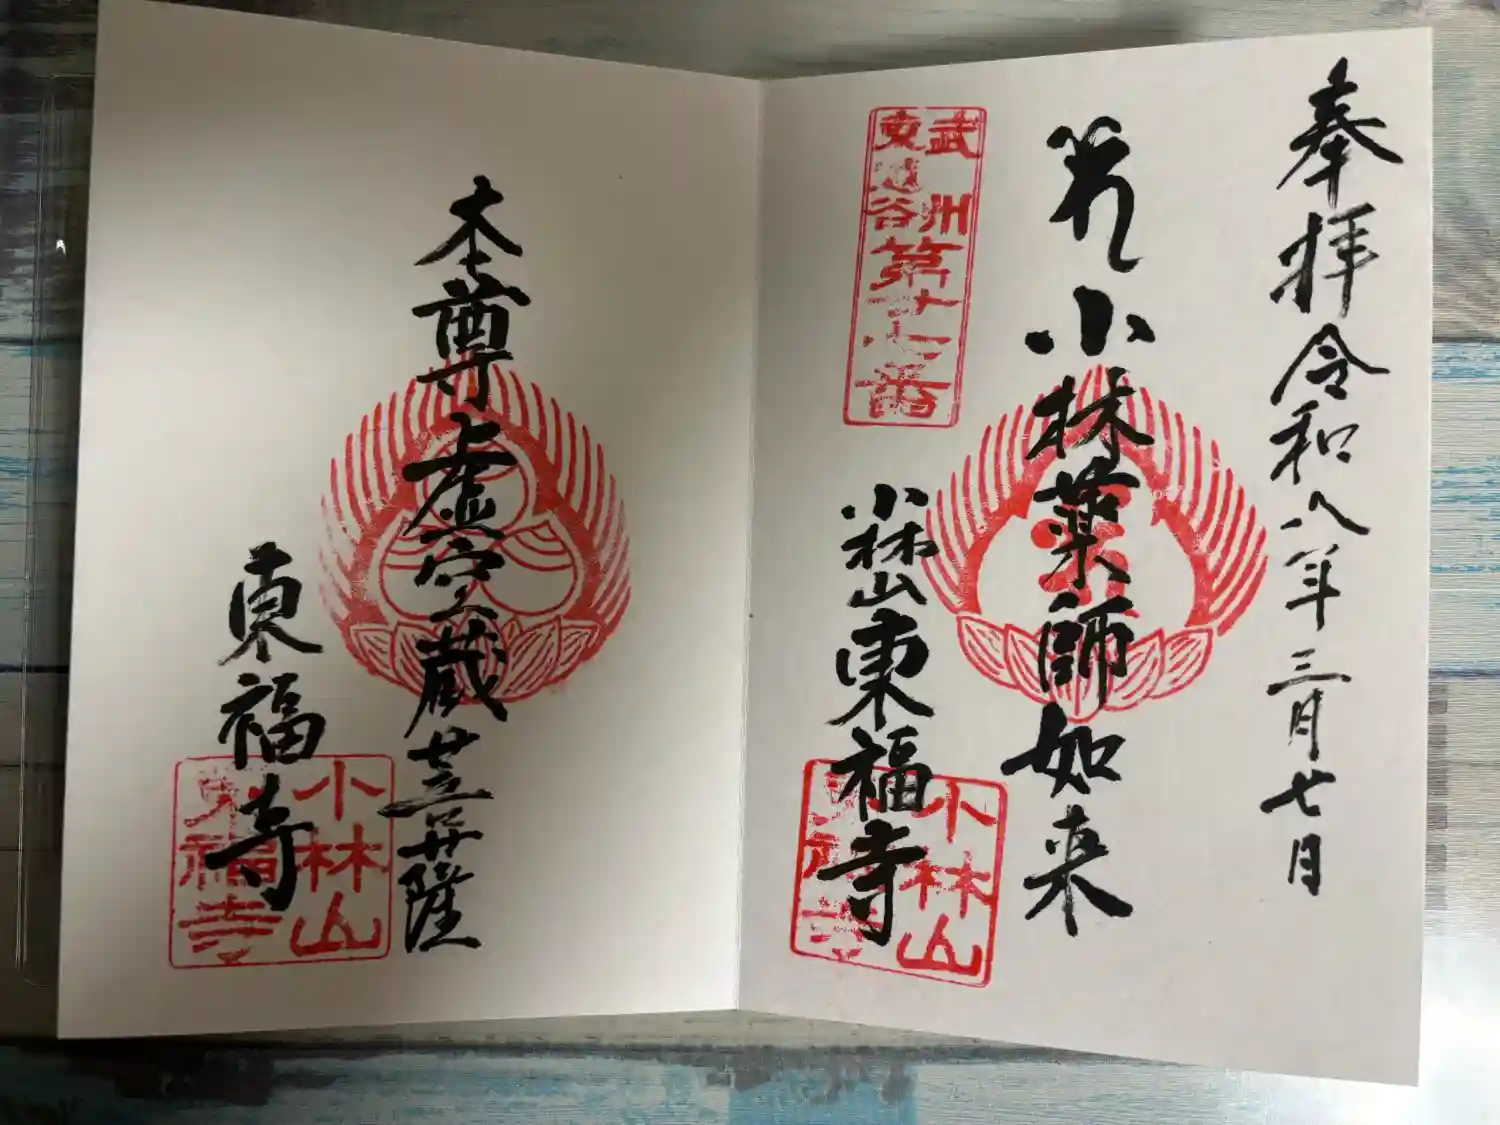 奉拝 令和八年三月七日
小林薬師如来
武州
第廿七番
小林山東福寺
小林山
東福寺
本尊虚空蔵菩薩
東福寺
小林山
東福寺